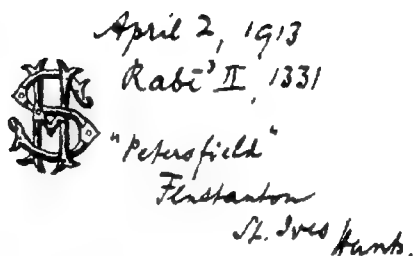 April 2, 1913
Rabī' II, 1331
"Petersfield"
Fenstanton
St. Ives
Hunts.